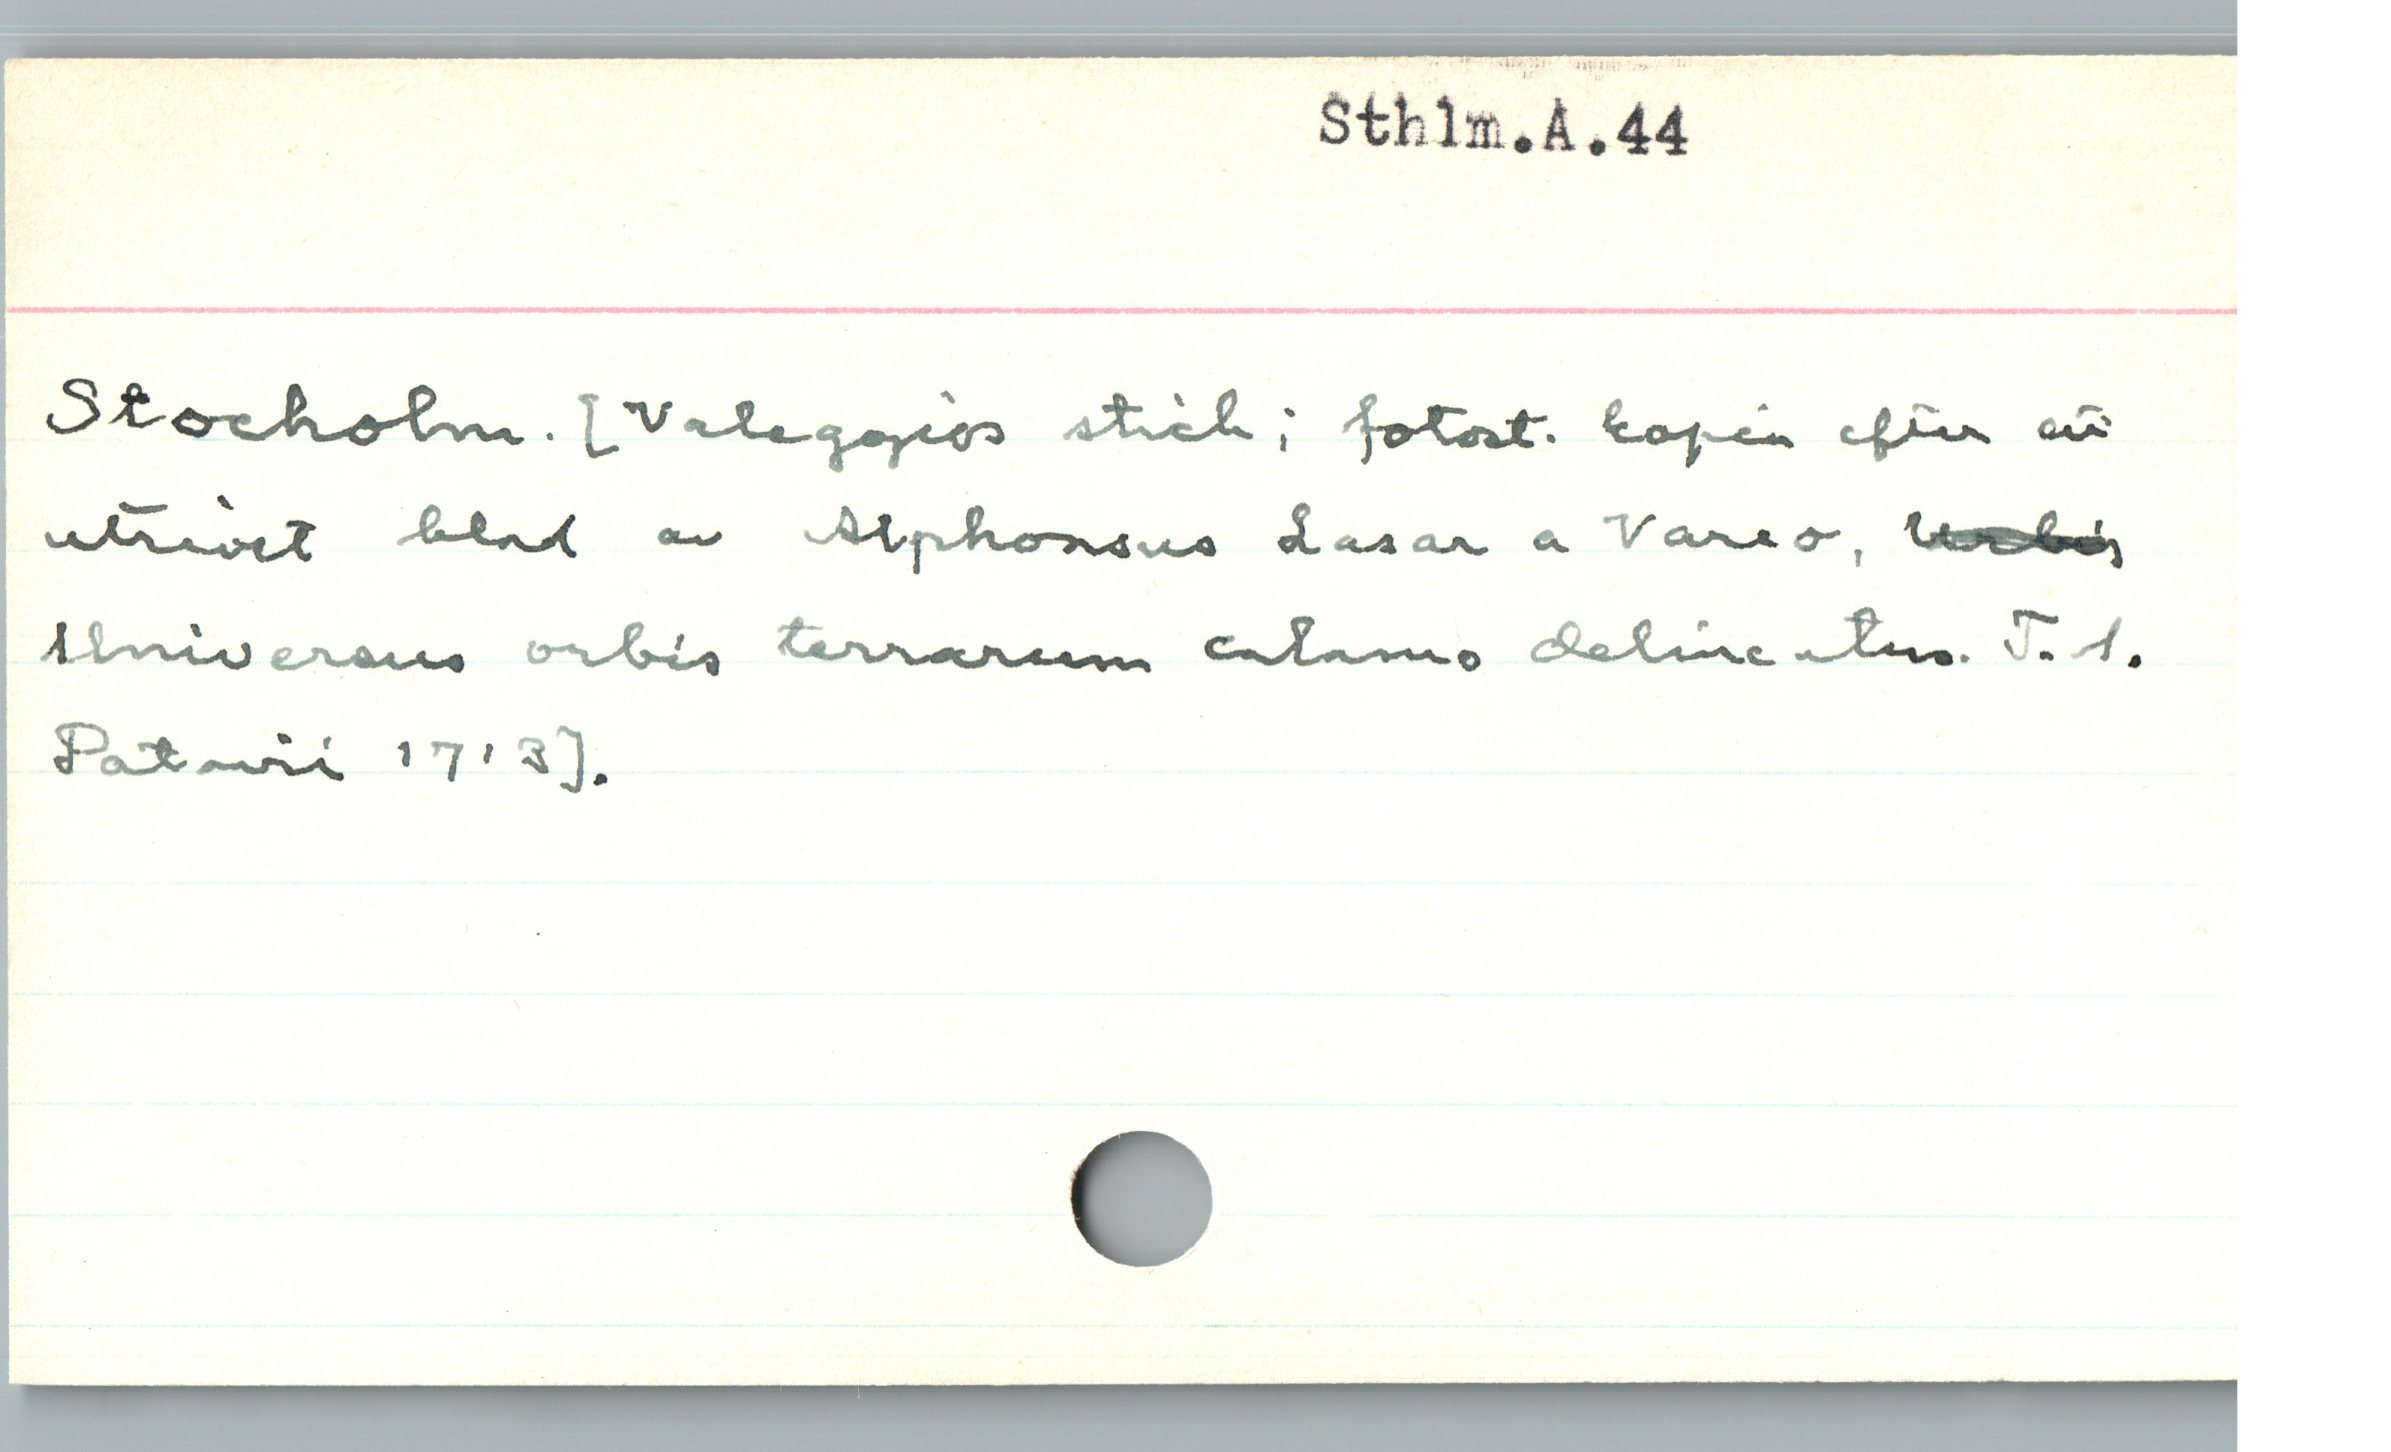 Sthlm.A.44
Stocholm. [Valeggios stich; fotost. kopia efter ett
utrivet blad av Alphonsus Lasar a Vareo, Urbis
Universus orbis terrarum calamo delineatus. T. 1.
Patavii 1713].